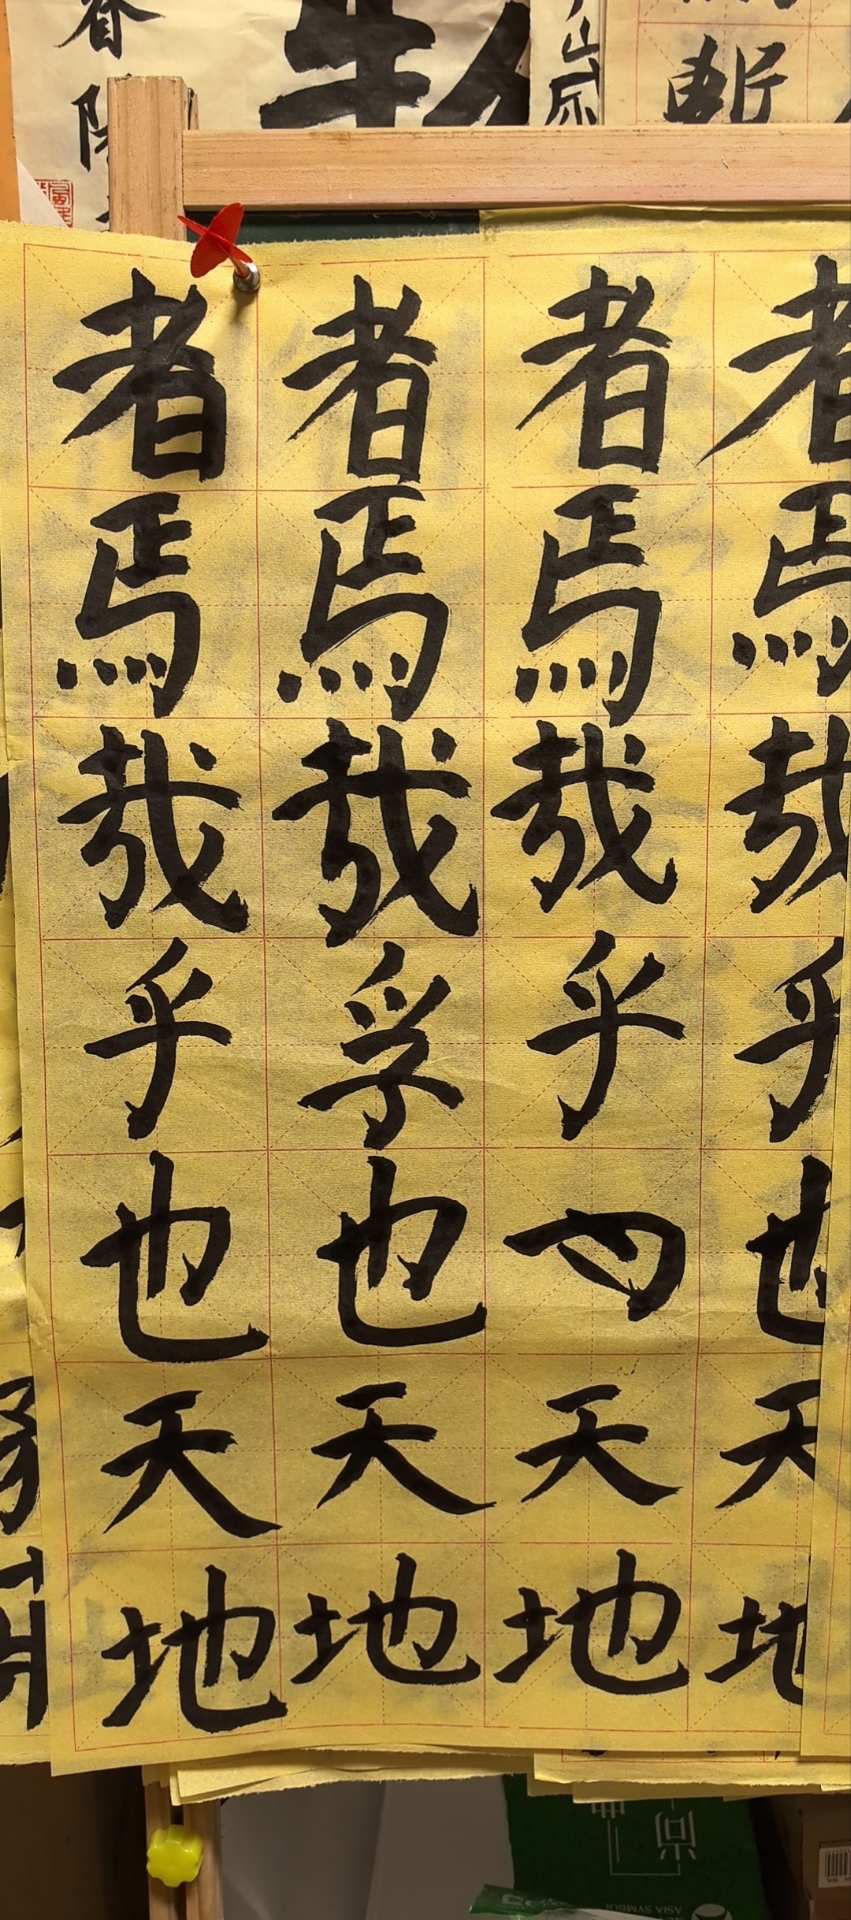 者焉哉乎也天地
者焉哉乎也天地
者焉哉孚也天地
者焉哉乎也天地
春
ASIA SYMBOL